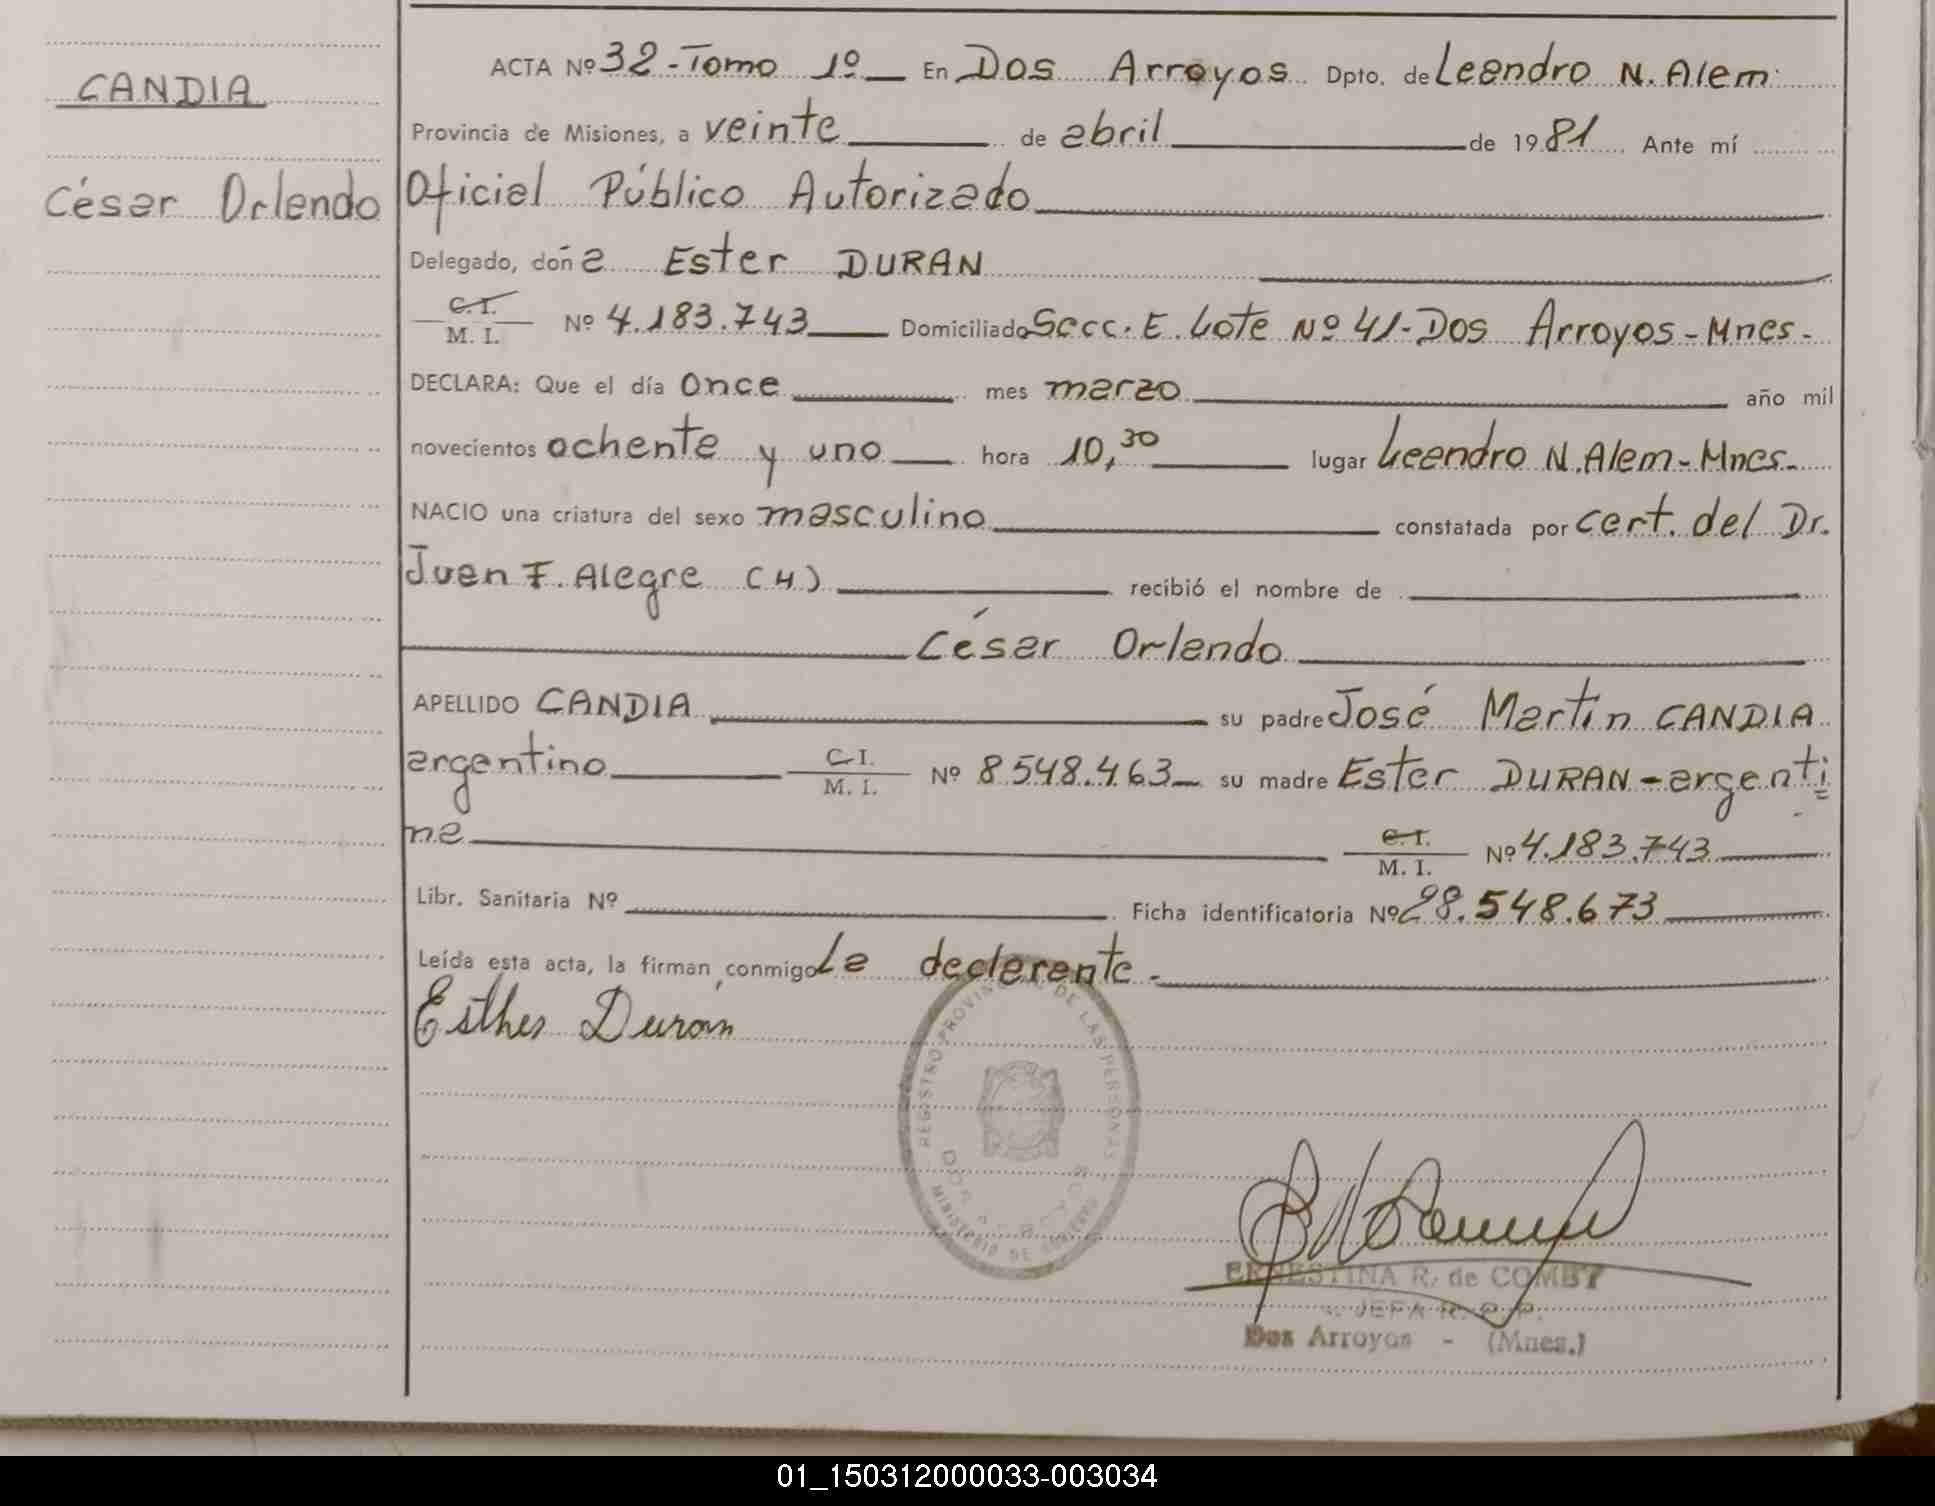 CANDIA
César Orlando
ACTA Nº 32 - Tomo 1º En Dos Arroyos Dpto. de Leandro N. Alem
Provincia de Misiones, a veinte de abril de 1981 Ante mí
Oficial Público Autorizado
Delegado, doña Ester DURAN
C.I. M.I. Nº 4.183.743 Domiciliado Secc. E. Lote Nº 41 - Dos Arroyos - Mnes -
DECLARA: Que el día once mes marzo año mil
novecientos ochenta y uno hora 10,30 lugar Leandro N. Alem - Mnes.
NACIO una criatura del sexo masculino constatada por cert. del Dr.
Juan F. Alegre (H) recibió el nombre de
César Orlando
APELLIDO CANDIA su padre José Martín CANDIA
argentino C.I. M.I. Nº 8.548.463 su madre Ester DURAN - argenti
na C.I. M.I. Nº 4.183.743
Libr. Sanitaria Nº Ficha identificatoria Nº 28.548.673
Leída esta acta, la firman conmigo La declarante.-
Esther Durán
REGISTRO PROVINCIAL DE LAS PERSONAS
DOS ARROYOS
MINISTERIO DE GOBIERNO
ERNESTINA R. de COMBY
JEFA R. P. P.
Dos Arroyos - (Mnes.)
01_150312000033-003034